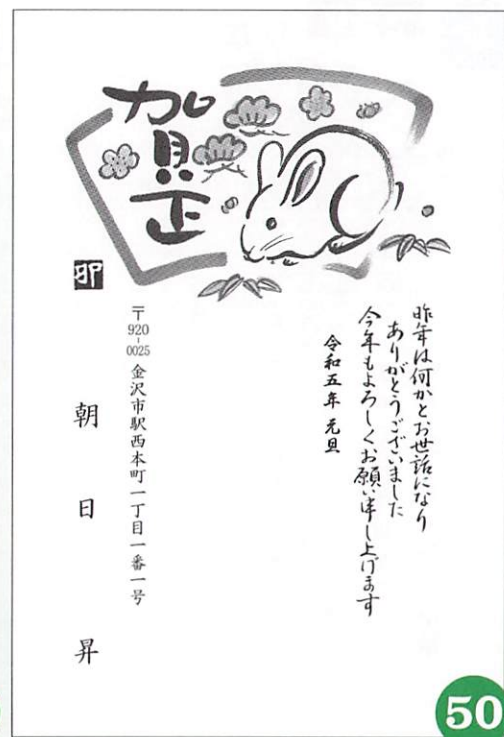 賀正
卯
昨年は何かとお世話になり
ありがとうございました
今年もよろしくお願い申し上げます
令和五年 元旦
〒920-0025 金沢市駅西本町一丁目一番一号
朝日 昇
50